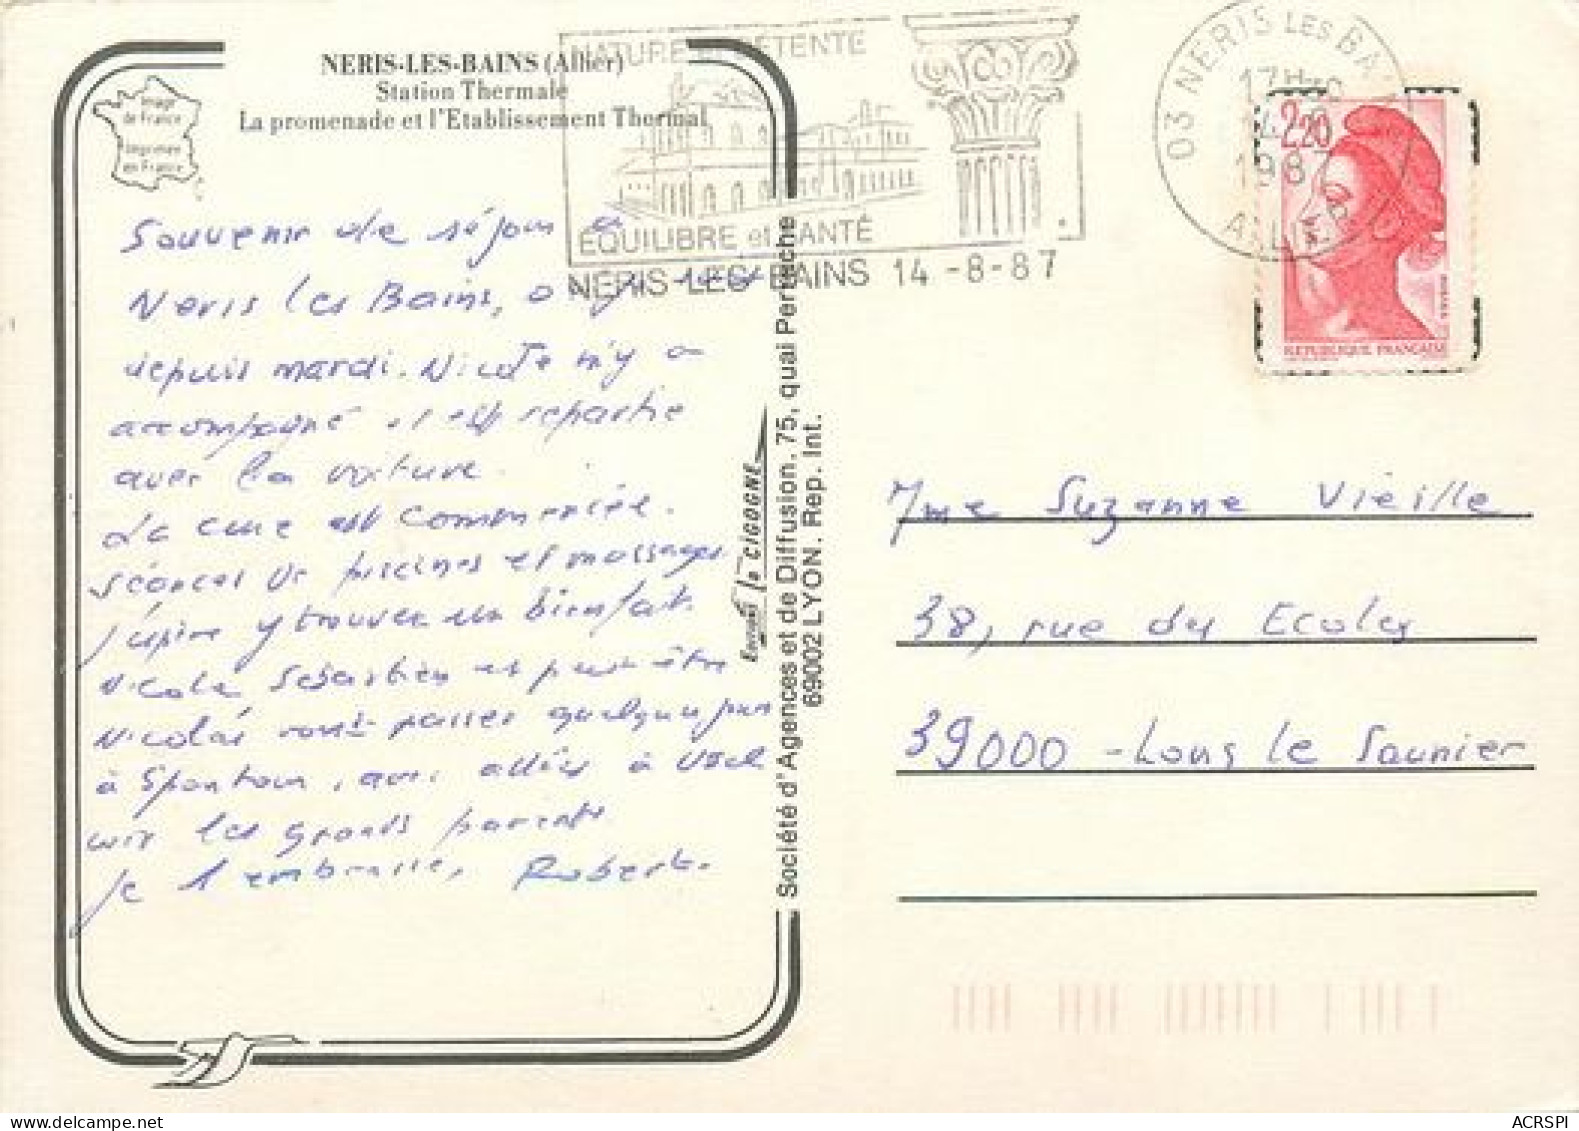 NERIS-LES-BAINS (Allier)
Station Thermale
La promenade et l'Etablissement Thermal
Image
de France
Imprimée
en France
NATURE et DÉTENTE
EQUILIBRE et SANTÉ
NERIS-LES-BAINS 14-8-87
03 NERIS LES BAINS
17H
198
ALLIER
2,20
REPUBLIQUE FRANÇAISE
Souvenir de séjour à
Neris les Bains, où je suis
depuis mardi. Nicole m'y a
accompagné et est repartie
avec la voiture.
La cure est commencée.
Séances de piscines et massages
J'espère y trouver un bienfait.
Nicole Sébastien et peut-être
Nicolas vont passer quelques jours
à Spontour, avec allées à Ussel
voir les grands parents
Je t'embrasse, Robert.
la CIGOGNE
Société d'Agences et de Diffusion, 75, quai Perrache
69002 LYON. Rep. Int.
Mme Suzanne Vieille
38, rue du Ecoly
39000 - Lons le Saunier
ACRSPI